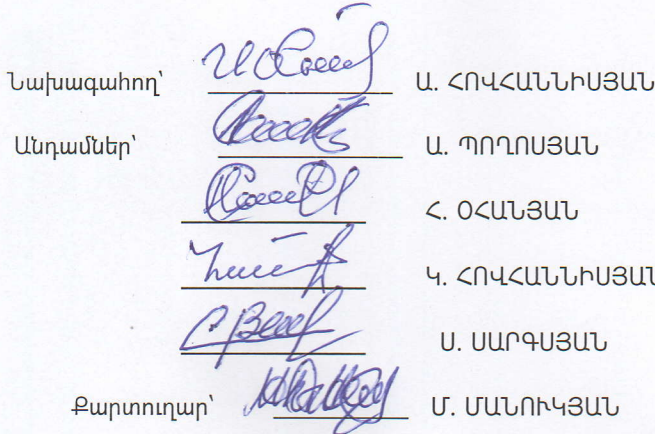 Նախագահող՝ Ա. ՀՈՎՀԱՆՆԻՍՅԱՆ
Անդամներ՝ Ա. ՊՈՂՈՍՅԱՆ
Հ. ՕՀԱՆՅԱՆ
Կ. ՀՈՎՀԱՆՆԻՍՅԱՆ
Ս. ՍԱՐԳՍՅԱՆ
Քարտուղար՝ Մ. ՄԱՆՈՒԿՅԱՆ